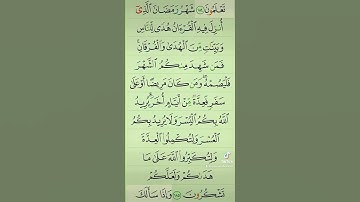 تَعْلَمُونَ ١٨٤ شَهْرُ رَمَضَانَ ٱلَّذِىٓ
أُنزِلَ فِيهِ ٱلْقُرْءَانُ هُدًى لِّلنَّاسِ
وَبَيِّنَٰتٍ مِّنَ ٱلْهُدَىٰ وَٱلْفُرْقَانِ ۚ
فَمَن شَهِدَ مِنكُمُ ٱلشَّهْرَ
فَلْيَصُمْهُ ۖ وَمَن كَانَ مَرِيضًا أَوْ عَلَىٰ
سَفَرٍ فَعِدَّةٌ مِّنْ أَيَّامٍ أُخَرَ ۗ يُرِيدُ
ٱللَّهُ بِكُمُ ٱلْيُسْرَ وَلَا يُرِيدُ بِكُمُ
ٱلْعُسْرَ وَلِتُكْمِلُوا۟ ٱلْعِدَّةَ
وَلِتُكَبِّرُوا۟ ٱللَّهَ عَلَىٰ مَا
هَدَىٰكُمْ وَلَعَلَّكُمْ
تَشْكُرُونَ ١٨٥ وَإِذَا سَأَلَكَ